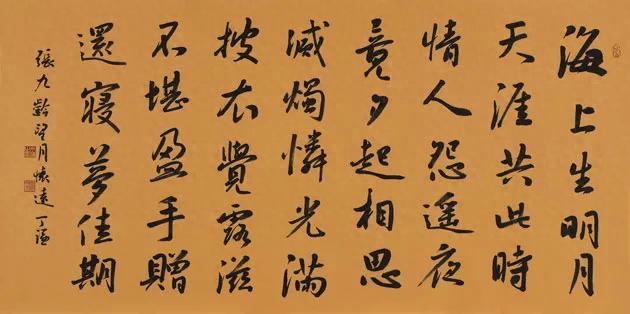 海上生明月
天涯共此時
情人怨遥夜
竟夕起相思
滅燭憐光滿
披衣覺露滋
不堪盈手贈
還寢夢佳期
張九齡望月懷遠 丁謙